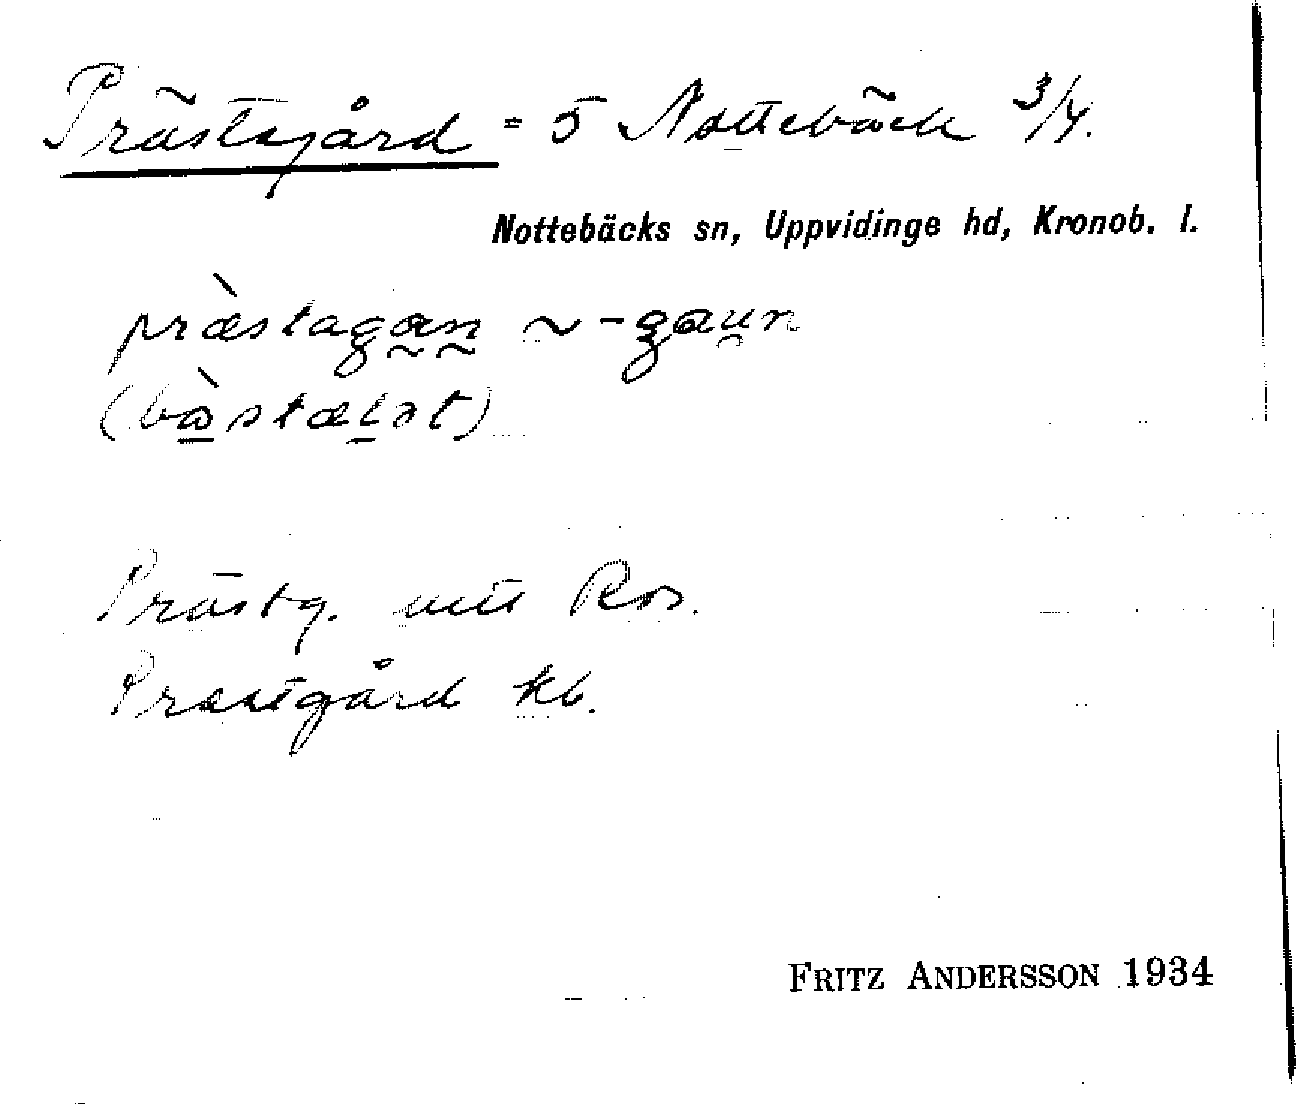 Prästgård = 5 Nottebäck 3/4.
Nottebäcks sn, Uppvidinge hd, Kronob. l.
præ̀stagan ~ -gaun
(bòstælət)
Prästg. utt Ros.
Prästgård kb.
FRITZ ANDERSSON 1934